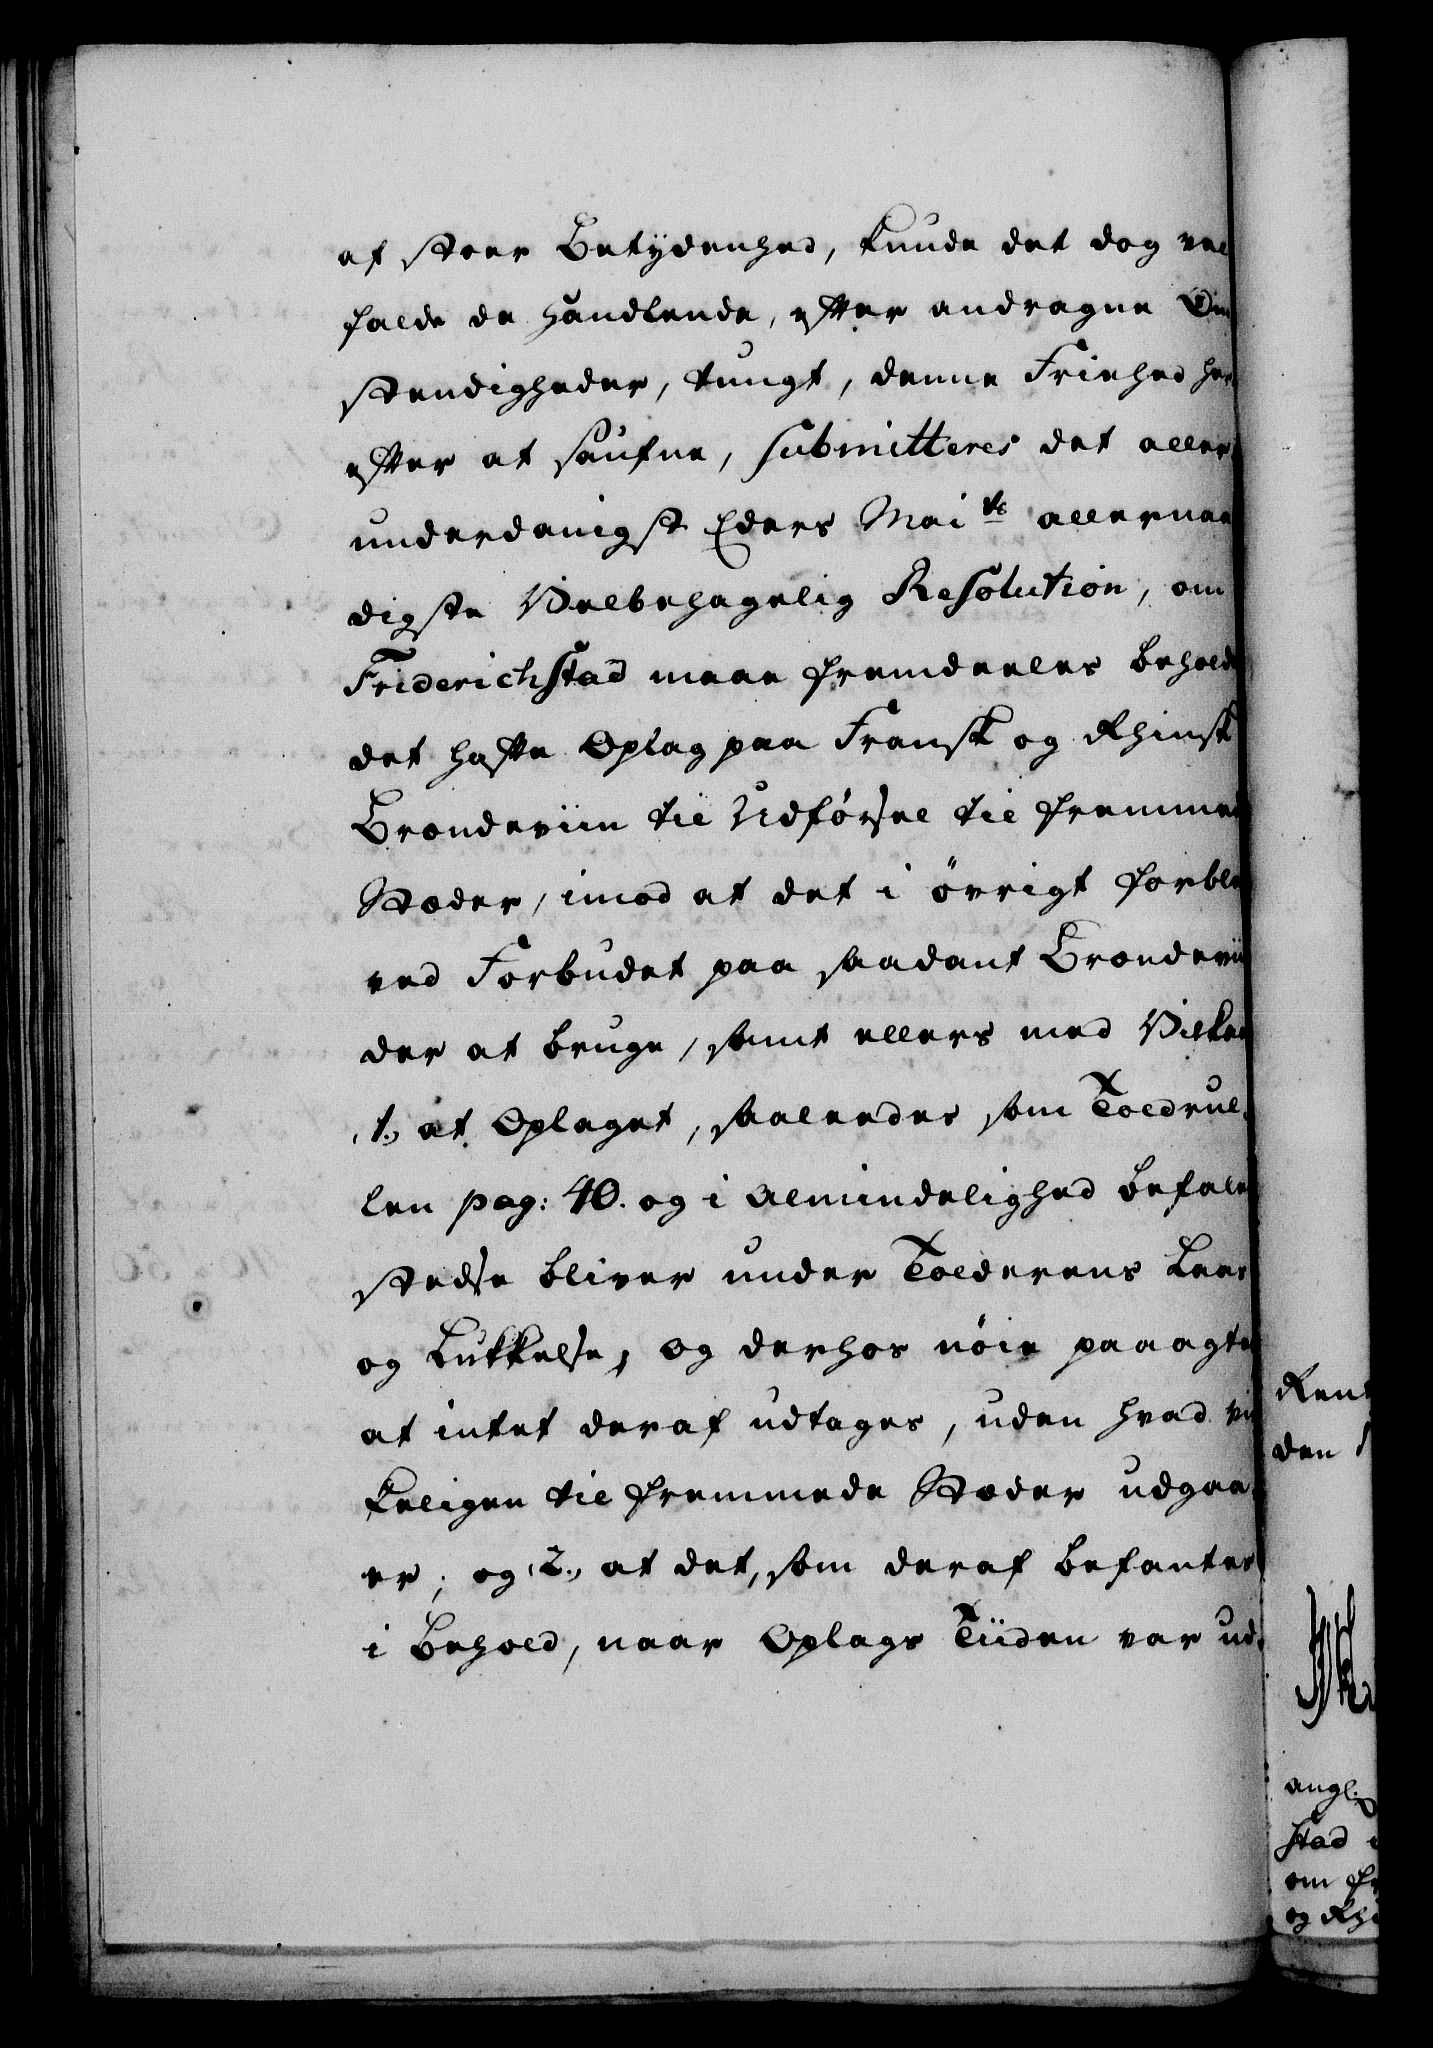 af stoer Betydenhed, kunde det dog vel
falde de handlende, efter andragne Om
stendigheder, tungt, denne Friehed her
efter at saufne, submitteres det aller
underdanigst Eders Mai<sup>ts</sup> allernaa
digste Velbehagelig Resolution, om
Friderichstad maae fremdeeles behold
det hafte Oplag paa Fransk og Rhinsk
Brændeviin til Udførsel til fremmed
Stæder, imod at det i øvrigt forbli
ved Forbudet paa saadant Brændevii
der at bruge, samt ellers med Vilkaa
1., at Oplaget, saaleedes som Toldrul-
len pag: 40. og i Almindelighed befale
stedse bliver under Tolderens Laas
og Lukkelse, og derhos nøie paaagte
at intet deraf udtages, uden hvad vir
keligen til fremmede Stæder udgaa-
er; og 2., at det, som deraf befantes
i Behold, naar Oplags Tiiden var ud-
Rent
den
angl.
stad
om fr
og Rhi